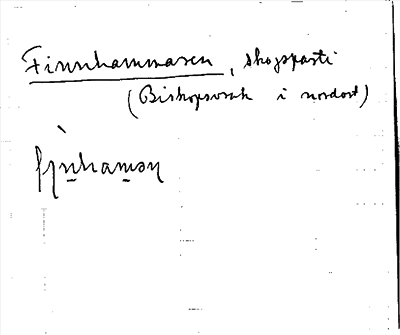 Finnhammaren, skogsparti
(Bishopsvrak i nordost)
fìn̲hamạn